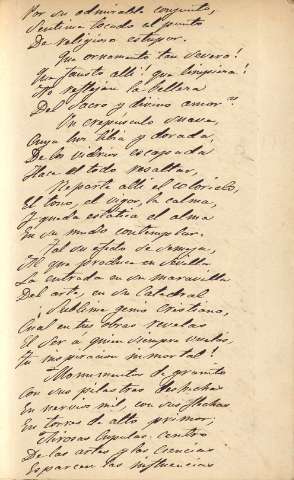 Por su admirable conjunto,
Sentirse tocado al punto
De religioso estupor.
Que ornamento tan severo!
Que fausto allí! que limpieza!
No reflejan la belleza
Del Sacro y divino amor?
Un crepusculo suave,
Cuya luz tibia y dorada,
De los vidrios escapada
Hace el todo resaltar,
Reparte allí el colorido,
El tono, el vigor, la calma,
Y queda estática el alma
En su mudo contemplar.
Tal su efecto se semeja,
Al que produce en Sevilla
La entrada en su maravilla
Del arte, en su Catedral
¡Sublime genio Cristiano,
Cual en tus obras revelas
El Ser á quien siempre vuelas,
Tu inspiracion inmortal!
Monumentos de granito
Con sus pilastras
En mil, con sus flechas
En torres de alto primor;
Airosas Cupulas centro
De las artes y las ciencias
Esparcen las influencias